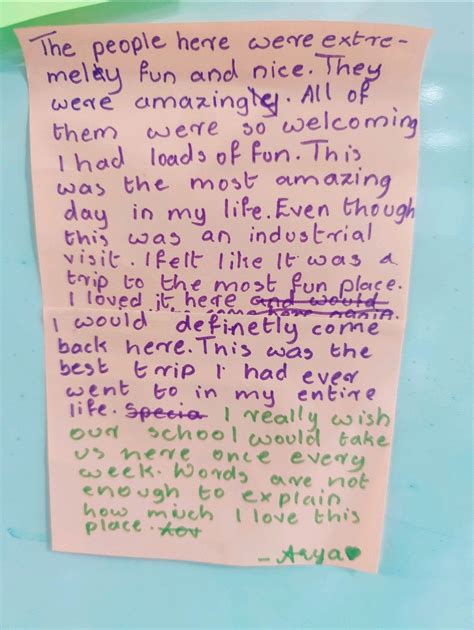 The people here were extre-
melay fun and nice. They
were amazingly. All of
them were so welcoming
I had loads of fun. This
was the most amazing
day in my life. Even though
this was an industrial
visit. I felt like It was a
trip to the most fun place.
I loved it here and would
come here again.
I would definetly come
back here. This was the
best trip I had ever
went to in my entire
life. Specia I really wish
our school would take
us here once every
week. Words are not
enough to explain
how much I love this
place.
- Arya♥